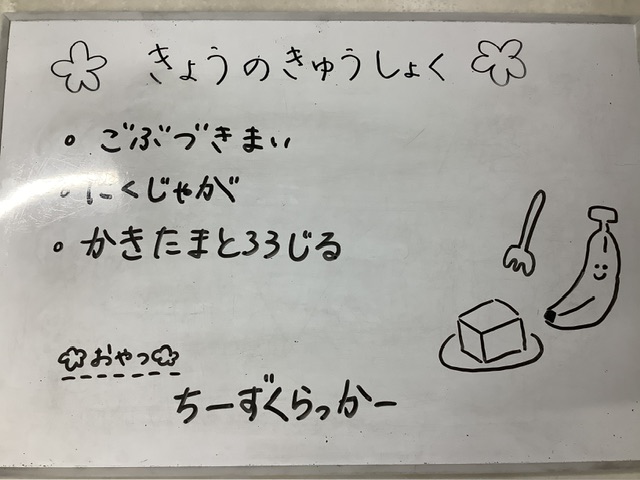 きょうのきゅうしょく
・ごぶづきまい
・にくじゃが
・かきたまとろろじる
おやつ
ちーずくらっかー